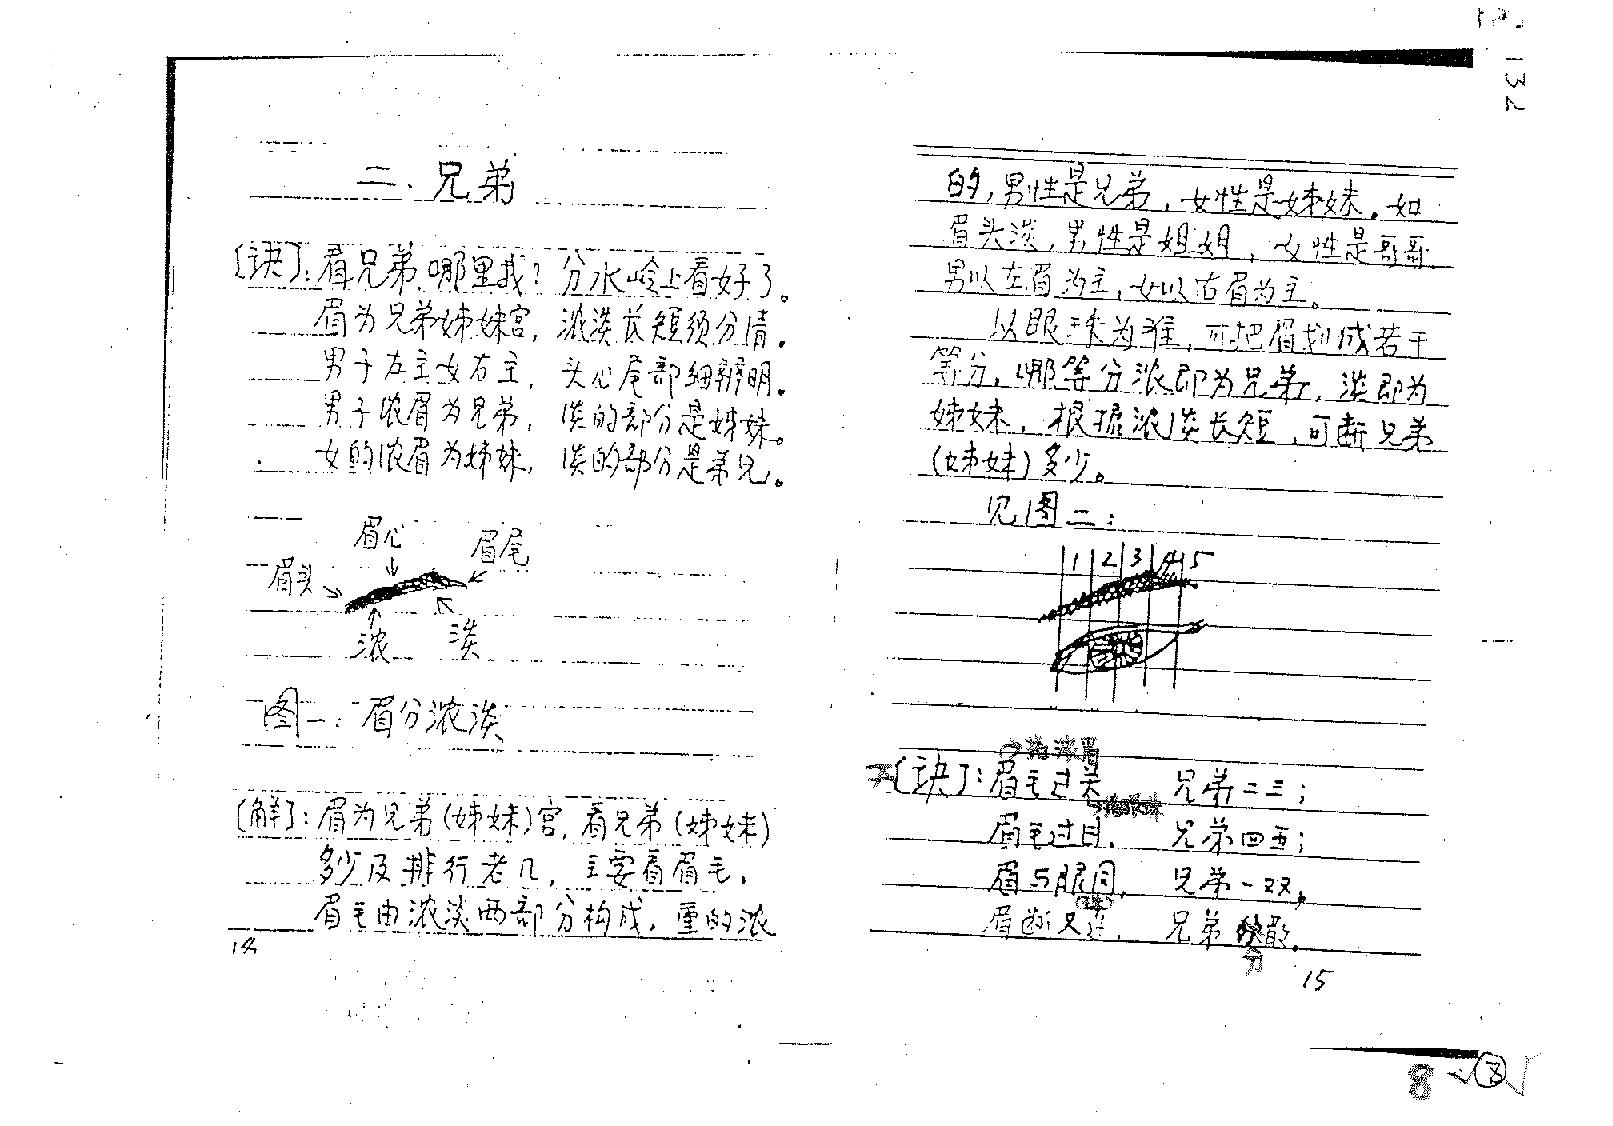 132
二、兄弟
〔诀〕：看兄弟，哪里找？分水岭上看好了。
眉为兄弟姊妹宫，浓淡长短须分清。
男子左主女右主，头心尾部细辨明。
男子浓眉为兄弟，淡的部分是姊妹。
女的浓眉为姊妹，淡的部分是弟兄。
眉心
眉尾
眉头
浓
淡
图一：眉分浓淡
〔解〕：眉为兄弟（姊妹）宫，看兄弟（姊妹）
多少及排行老几，主要看眉毛。
眉毛由浓淡两部分构成，重的浓
14
的，男性是兄弟，女性是姊妹。如
眉头淡，男性是姐姐，女性是哥哥
男以左眉为主，女以右眉为主。
以眼球为准，可把眉划成若干
等分，哪等分浓即为兄弟，淡即为
姊妹，根据浓淡长短，可断兄弟
（姊妹）多少。
见图二：
1 2 3 4 5
〔诀〕：眉毛过关 兄弟二三；
眉毛过目， 兄弟四五；
眉与眼同， 兄弟一双，
眉断又连， 兄弟 散。
分
15
8